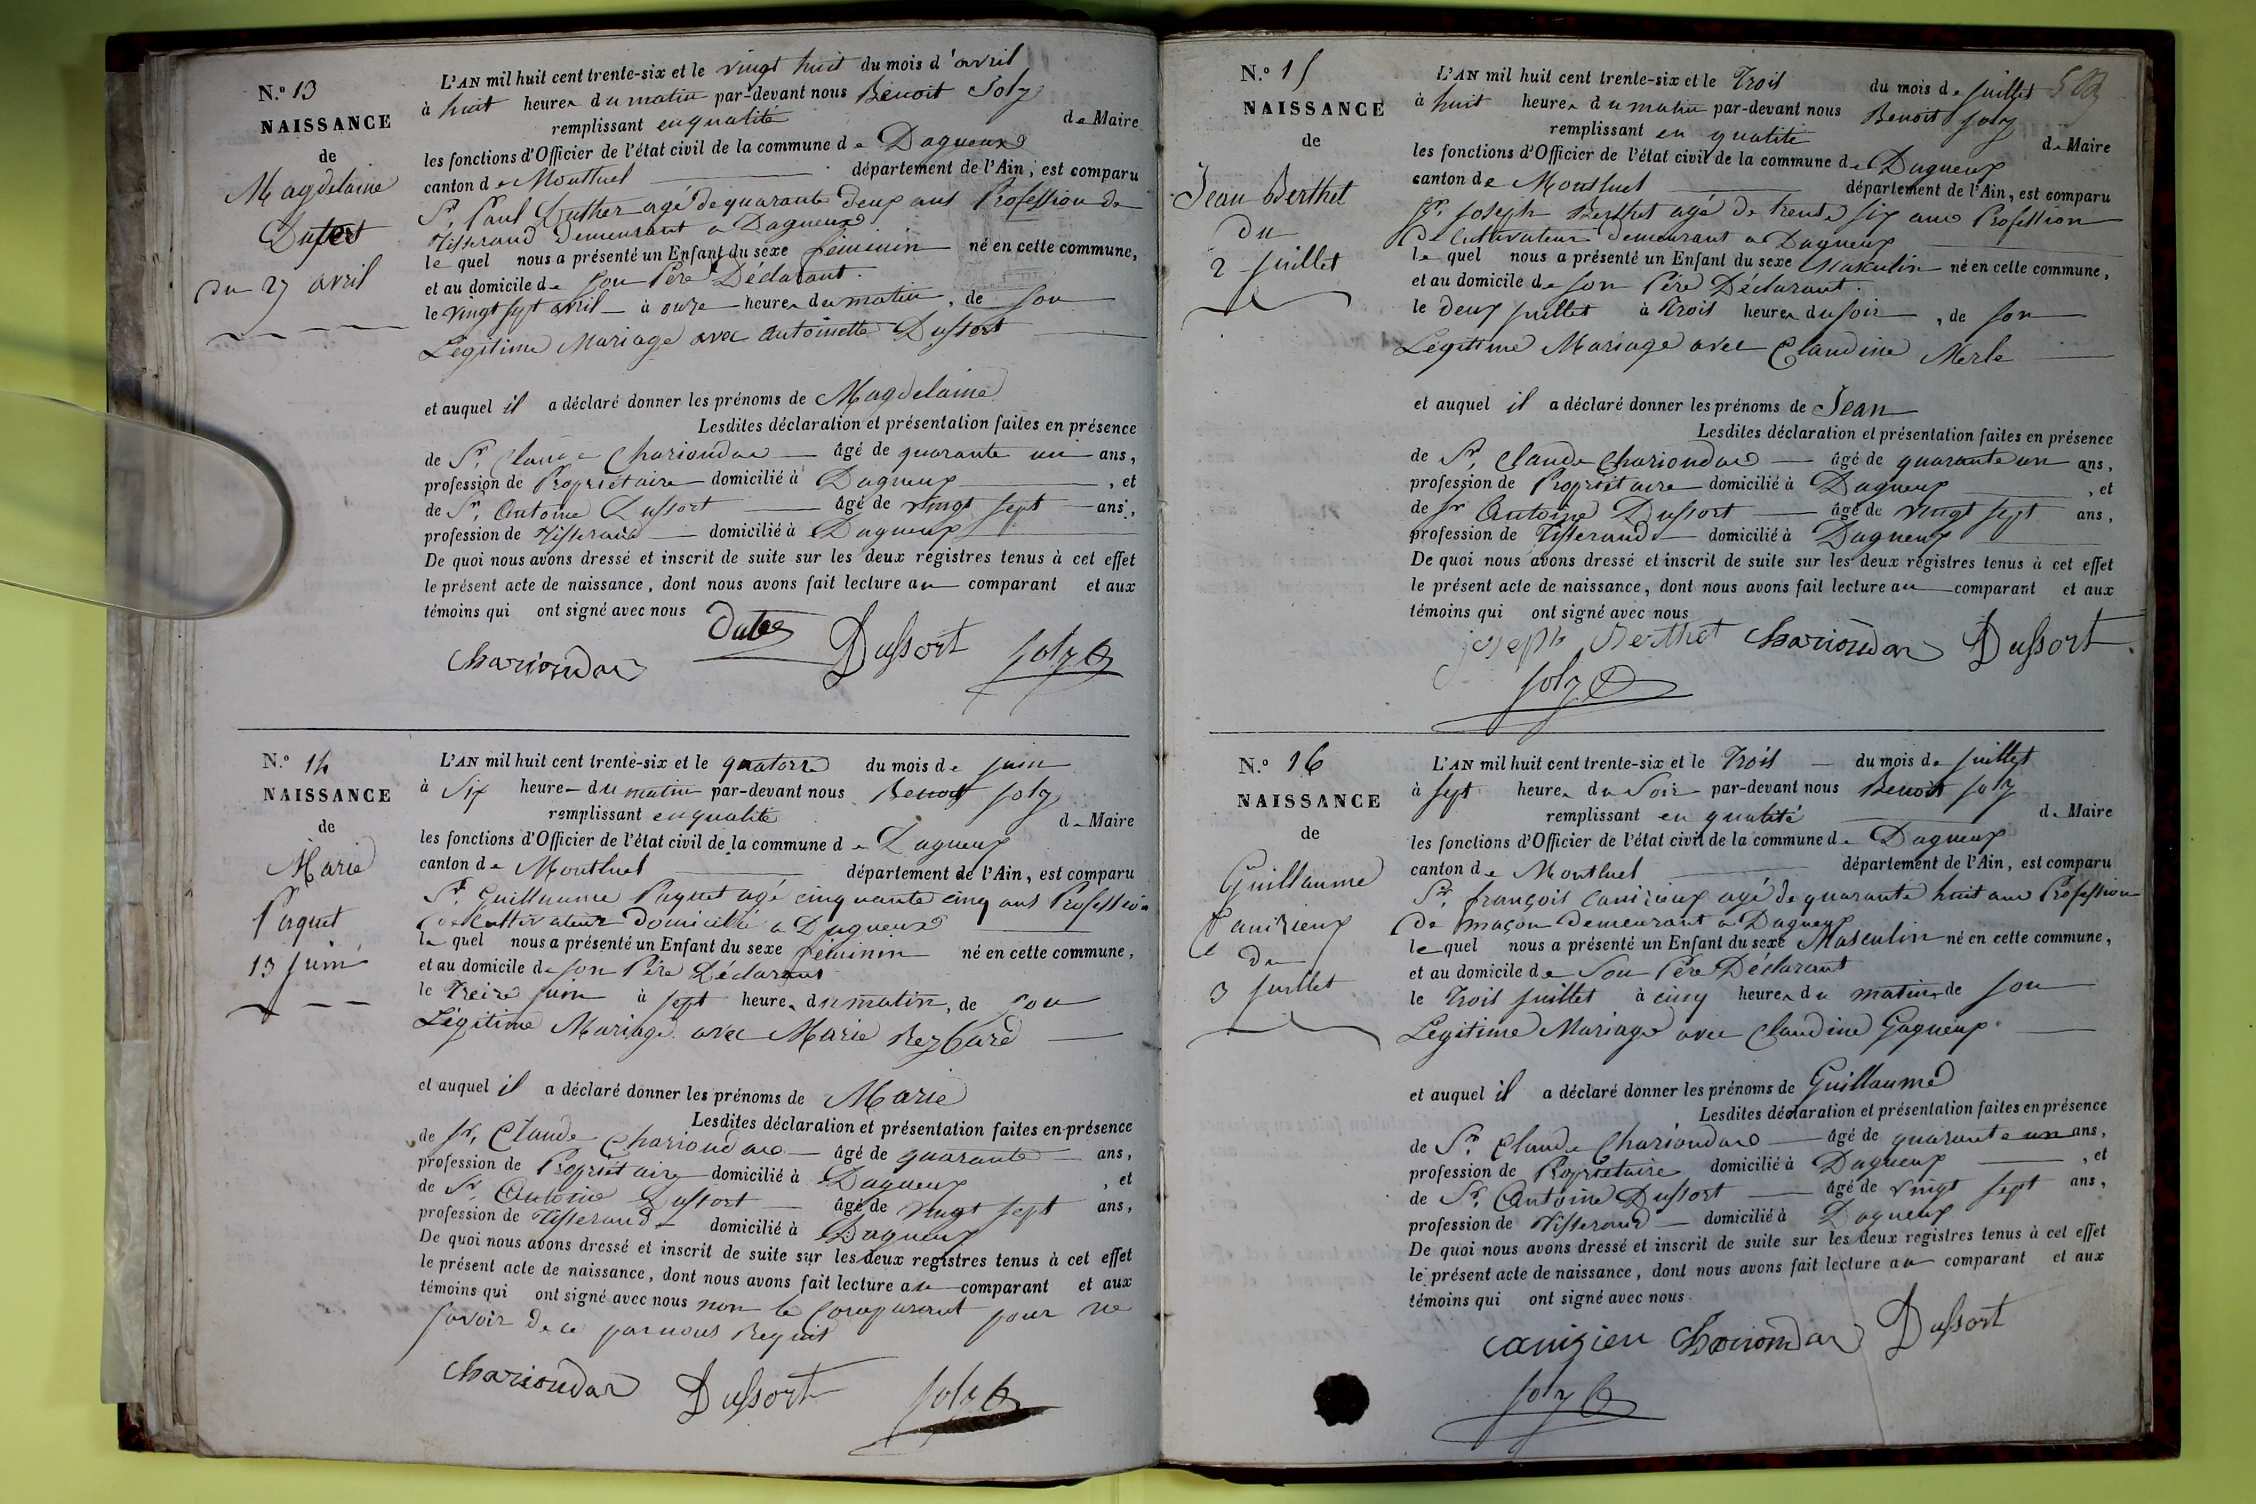 N.º 13
NAISSANCE
de
Magdelaine
du 27 avril
L'AN mil huit cent trente-six et le vingt huit du mois d'avril
à huit heures du matin par-devant nous Benoit Joly
remplissant en qualité de Maire
les fonctions d'Officier de l'état civil de la commune de Dagneux
canton de Montluel département de l'Ain, est comparu
Sr. Paul agé de quarante deux ans Profession de
Tisserand demeurant a Dagneux
lequel nous a présenté un Enfant du sexe féminin né en cette commune,
et au domicile de son Père Déclarant.
le vingt sept avril à onze heures du matin, de son
Légitime Mariage avec antoinette Dussort
et auquel il a déclaré donner les prénoms de Magdelaine
Lesdites déclaration et présentation faites en présence
de Sr. Claude Charioudas âgé de quarante un ans,
profession de Propriétaire domicilié à Dagneux, et
de Sr. Antoine Dussort âgé de vingt sept ans,
profession de Tisserand domicilié à Dagneux
De quoi nous avons dressé et inscrit de suite sur les deux registres tenus à cet effet
le présent acte de naissance, dont nous avons fait lecture au comparant et aux
témoins qui ont signé avec nous
Dussort Joly
N.º 14
NAISSANCE
de
Marie
Paquet
13 juin
L'AN mil huit cent trente-six et le quatorze du mois de juin
à Six heures du matin par-devant nous Benoit Joly
remplissant en qualité de Maire
les fonctions d'Officier de l'état civil de la commune de Dagneux
canton de Montluel département de l'Ain, est comparu
Sr. Guillaume Paquet agé cinquante cinq ans Profession
de Cultivateur domicilié a Dagneux
lequel nous a présenté un Enfant du sexe féminin né en cette commune,
et au domicile de son Père Déclarant
le Treize juin à sept heures du matin, de son
Légitime Mariage avec Marie
et auquel il a déclaré donner les prénoms de Marie
Lesdites déclaration et présentation faites en présence
de Sr. Claude Charioudas âgé de quarante ans,
profession de Propriétaire domicilié à Dagneux, et
de Sr. Antoine Dussort âgé de vingt sept ans,
profession de Tisserand domicilié à Dagneux
De quoi nous avons dressé et inscrit de suite sur les deux registres tenus à cet effet
le présent acte de naissance, dont nous avons fait lecture au comparant et aux
témoins qui ont signé avec nous non le Comparant pour ne
savoir de ce par nous Requis
Charioudas Dussort Joly
N.º 15
NAISSANCE
de
Jean Berthet
du
2 juillet
L'AN mil huit cent trente-six et le Trois du mois de juillet
à huit heures du matin par-devant nous Benoit Joly
remplissant en qualité de Maire
les fonctions d'Officier de l'état civil de la commune de Dagneux
canton de Montluel département de l'Ain, est comparu
Sr. Joseph Berthet agé de trente six ans Profession
de Cultivateur demeurant a Dagneux
lequel nous a présenté un Enfant du sexe Masculin né en cette commune,
et au domicile de son Père Déclarant.
le deux juillet à trois heures du soir, de son
Légitime Mariage avec Claudine Merle
et auquel il a déclaré donner les prénoms de Jean
Lesdites déclaration et présentation faites en présence
de Sr. Claude Charioudas âgé de quarante un ans,
profession de Propriétaire domicilié à Dagneux, et
de Sr Antoine Dussort âgé de vingt sept ans,
profession de Tisserand domicilié à Dagneux
De quoi nous avons dressé et inscrit de suite sur les deux registres tenus à cet effet
le présent acte de naissance, dont nous avons fait lecture au comparant et aux
témoins qui ont signé avec nous
joseph Berthet Charioudas Dussort
Joly
N.º 16
NAISSANCE
de
Guillaume
Canizieux
du
3 juillet
L'AN mil huit cent trente-six et le Trois du mois de juillet
à sept heures du Soir par-devant nous Benoit Joly
remplissant en qualité de Maire
les fonctions d'Officier de l'état civil de la commune de Dagneux
canton de Montluel département de l'Ain, est comparu
Sr. françois Canizieux agé de quarante huit ans Profession
de maçon demeurant a Dagneux
lequel nous a présenté un Enfant du sexe Masculin né en cette commune,
et au domicile de Son Père Déclarant
le Trois juillet à cinq heures du matin de son
Légitime Mariage avec Claudine Gagneux
et auquel il a déclaré donner les prénoms de Guillaume
Lesdites déclaration et présentation faites en présence
de Sr. Claude Charioudas âgé de quarante un ans,
profession de Propriétaire domicilié à Dagneux, et
de Sr. Antoine Dussort âgé de vingt sept ans,
profession de Tisserand domicilié à Dagneux
De quoi nous avons dressé et inscrit de suite sur les deux registres tenus à cet effet
le présent acte de naissance, dont nous avons fait lecture au comparant et aux
témoins qui ont signé avec nous.
canizieu Charioudas Dussort
Joly